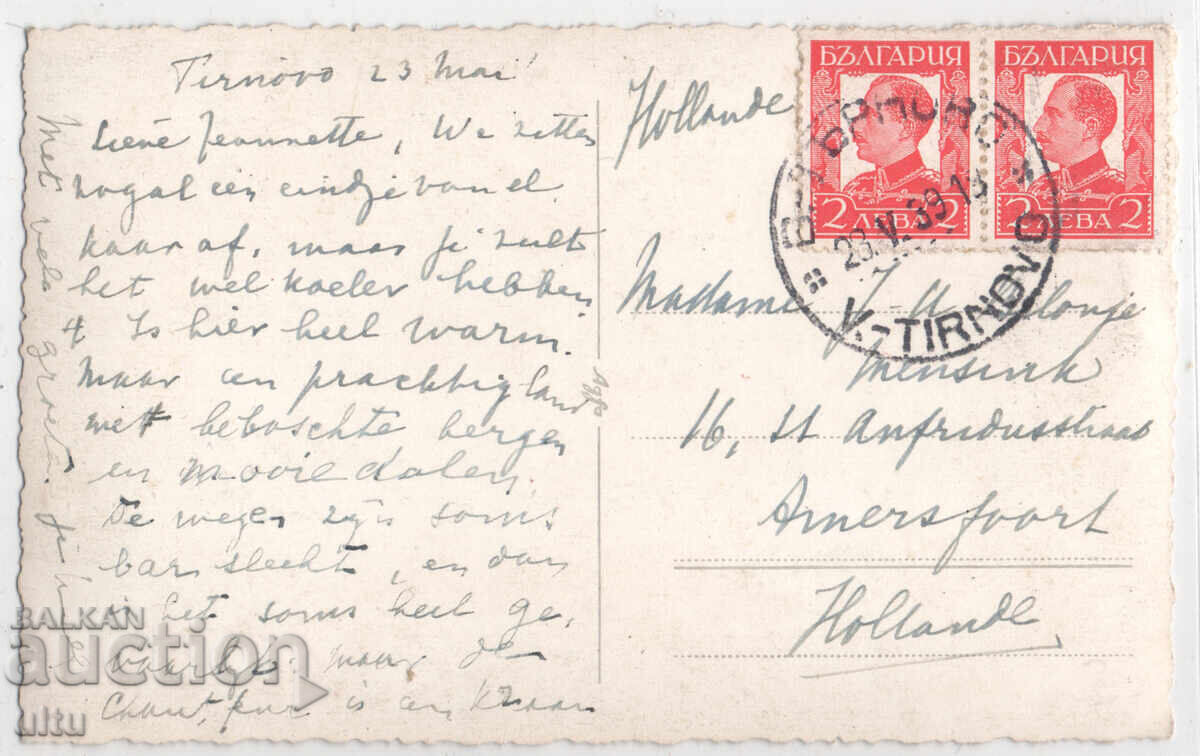 Tirnovo 23 Mai
Lieve Jeannette, We zitten
nogal een eindje van el
kaar af, maar je zult
het wel koeler hebben
't Is hier heel warm.
Maar een prachtig land
met beboschte bergen
en mooie dalen.
De wegen zijn soms
bar slecht, en dan
is het soms heel ge,
vaarlijk maar de
chauffeur is een knaap
Met vele groeten
Agfa
Hollande
БЪЛГАРИЯ
2 ЛЕВА 2
БЪЛГАРИЯ
2 ЛЕВА 2
В. ТЪРНОВО
23.V.39.18
V.-TIRNOVO
Madame
Mensink
16, St Anfridusstraat
Amersfoort
Hollande
BALKAN
auction
ultu